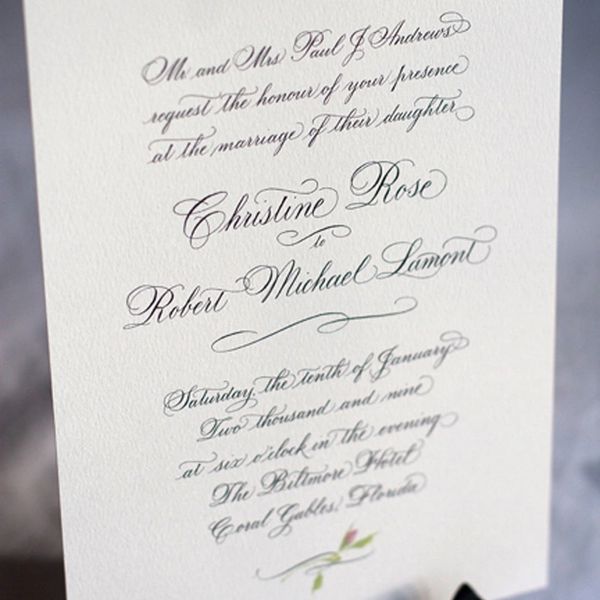 Mr and Mrs Paul J Andrews
request the honour of your presence
at the marriage of their daughter
Christine Rose
to
Robert Michael Lamont
Saturday, the tenth of January
Two thousand and nine
at six o'clock in the evening
The Biltmore Hotel
Coral Gables, Florida